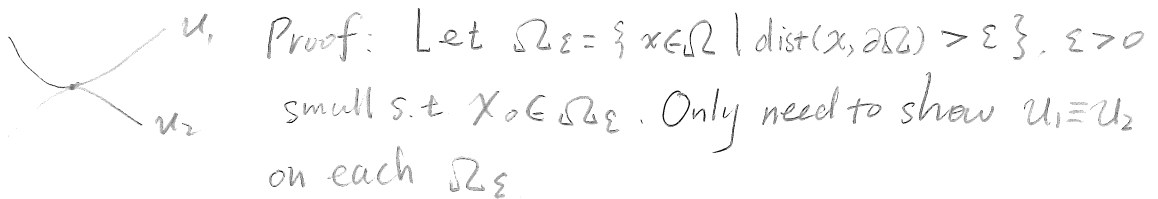 u₁ Proof: Let Ω_ε = { x∈Ω | dist(x, ∂Ω) > ε }. ε>0
u₂ small s.t X₀∈Ω_ε. Only need to show u₁≡u₂
on each Ω_ε